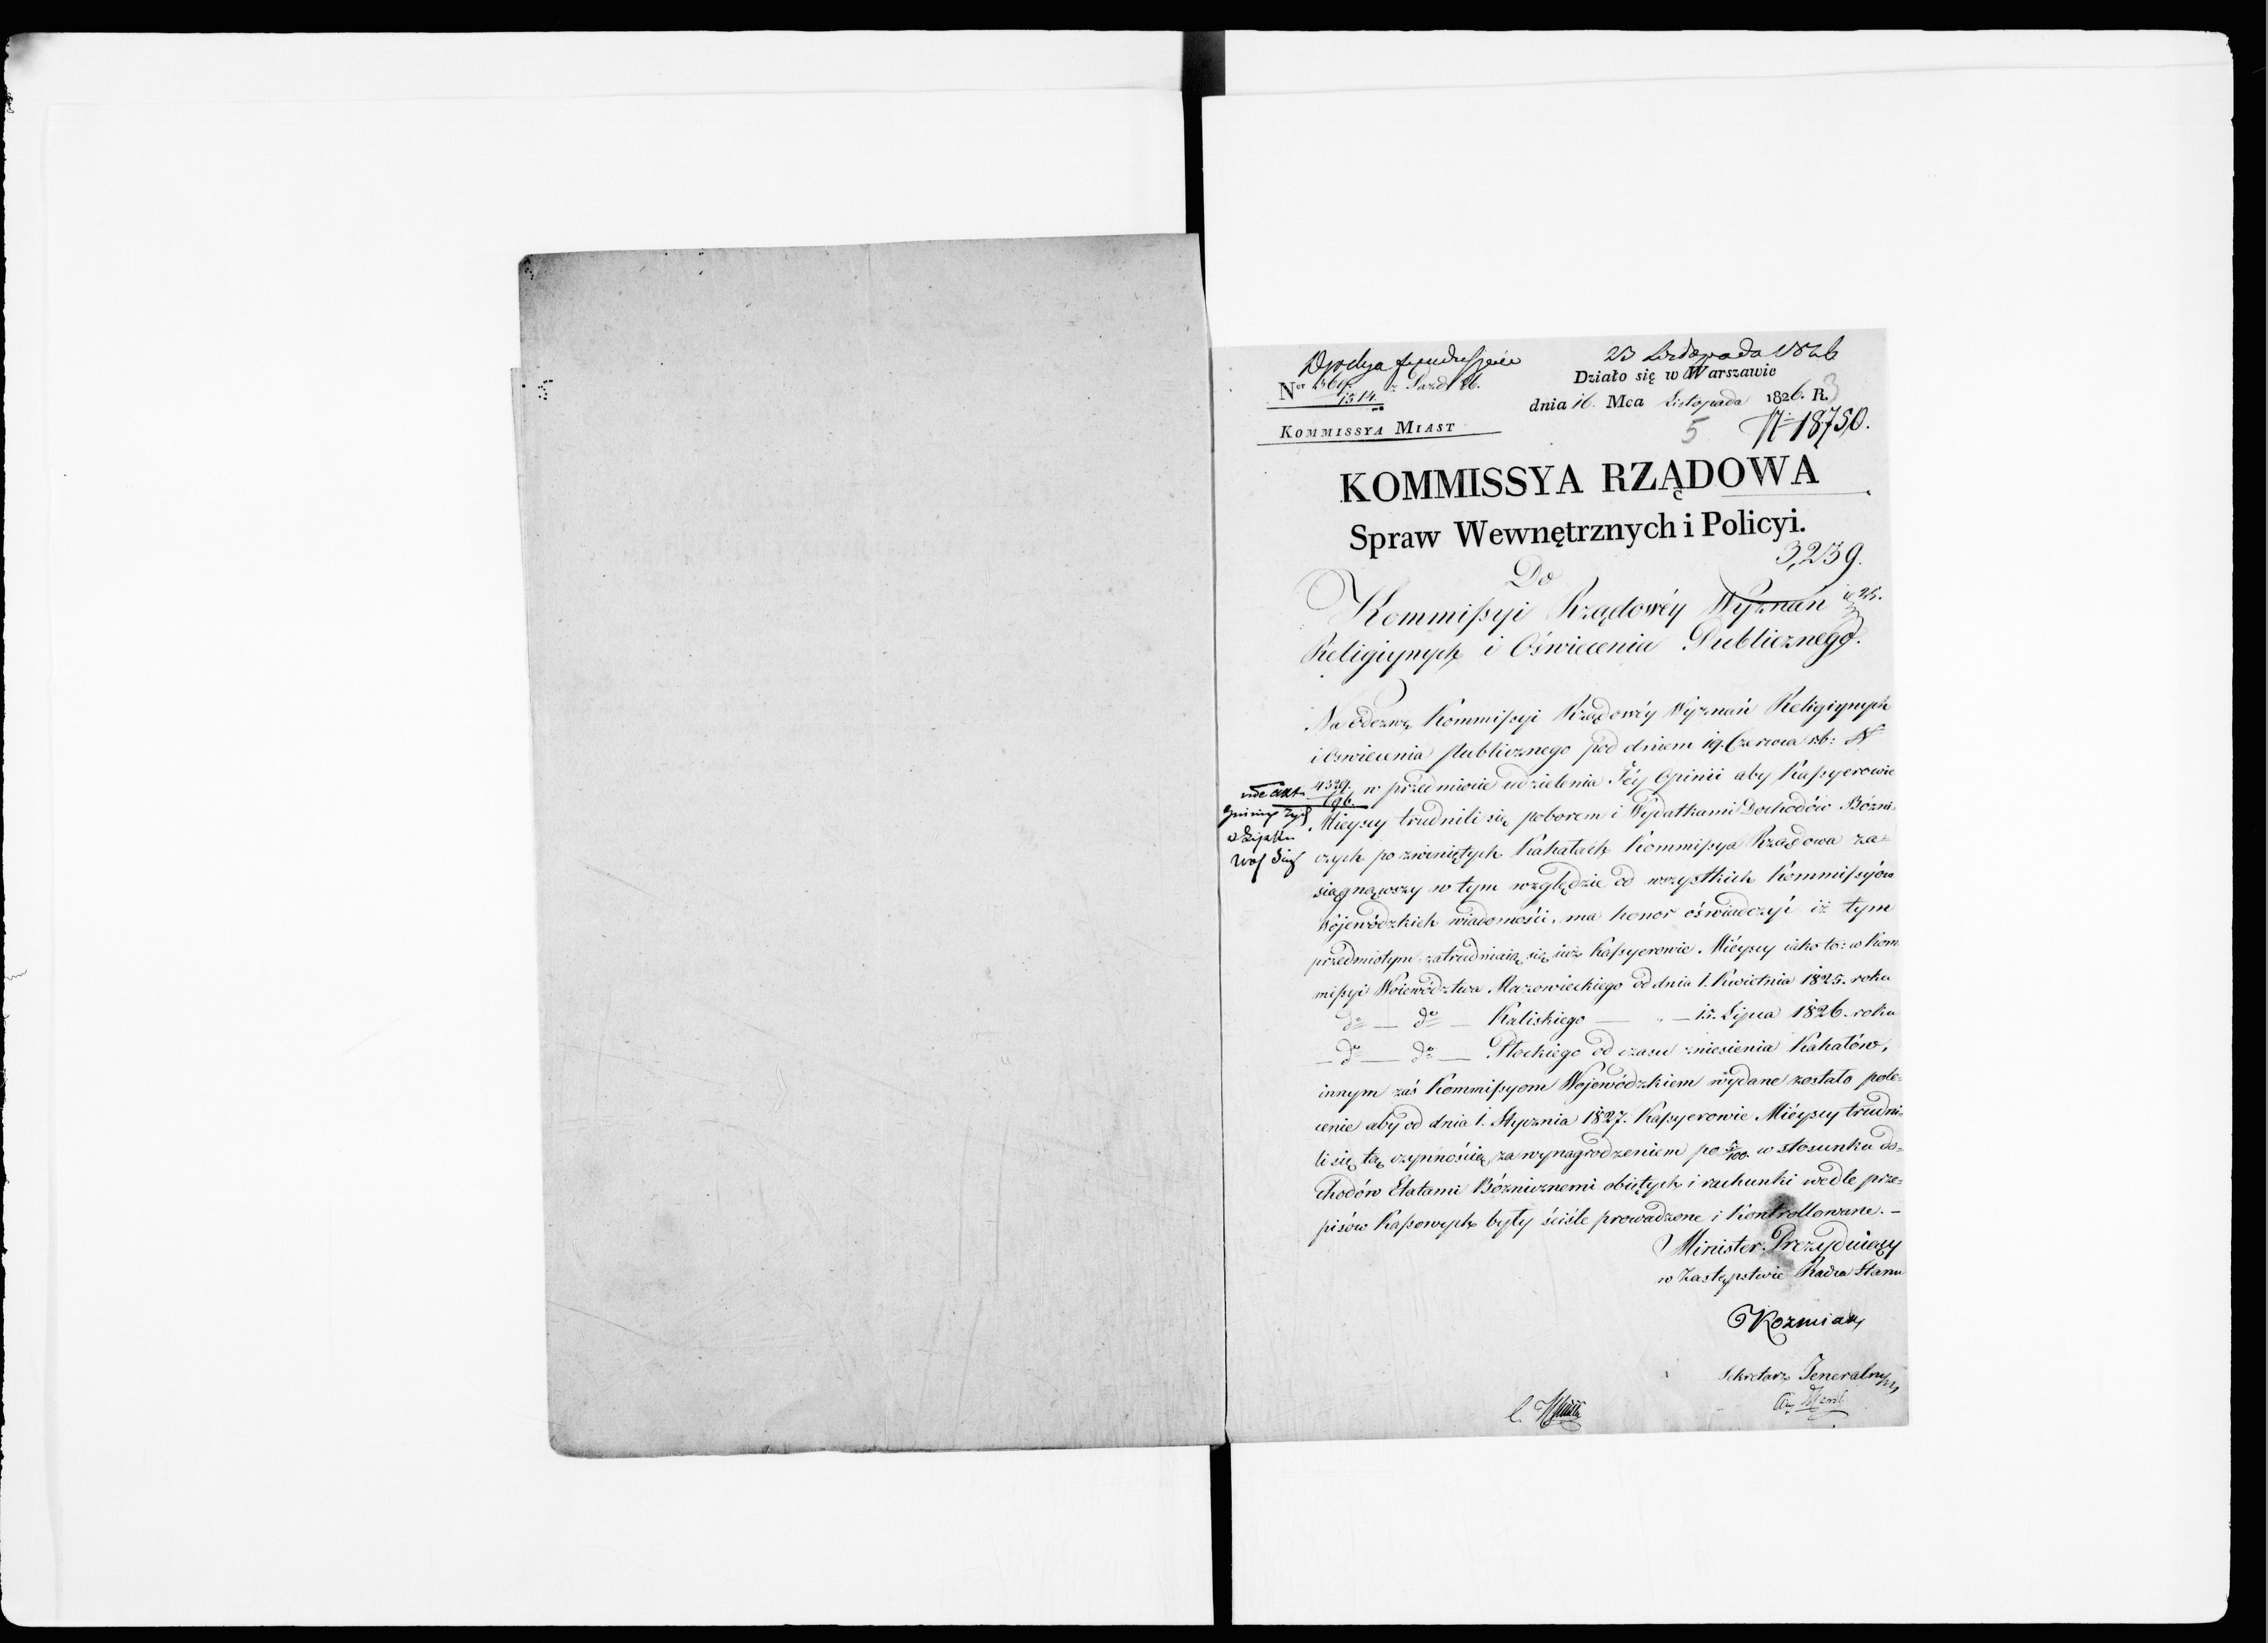 23 Listopada 1826
Działo się w Warszawie
Nor z Paźd 26.
1514.
dnia 16. Mca Listopada 1826. R.
3
KOMMISSYA MIAST
5 N. 18750.
KOMMISSYA RZĄDOWA
Spraw Wewnętrznych i Policyi.
3,239.
Do
Kommißyi Rządowéy Wyznań
Religiynych i Oświecenia Publicznego.
Na Odezwę Kommißyi Rządowéy Wyznań Religiynych
i Oswiecenia Publicznego pod dniem 19. Czerwca rb: N
4529./196. w przedmiocie udzielenia Jéy Opinii aby Kaßyerowie
Mieyscy trudnili się poborem i Wydatkami Dochodów Bózni-
czych po zwiniętych Kahałach Kommißya Rządowa za-
siągnąwszy w tym względzie od wszystkich Kommißyów
Wojewódzkich wiadomości, ma honor oświadczyć iż tym
przedmiotym zatrudniaią się iuż Kaßyerowie Mieyscy iako to: w Kom
mißyi Woiewództwa Mazowieckiego od dnia 1. Kwietnia 1825. roku
do — do — Kaliskiego — — 15. Lipca 1826. roku
— do — do — Płockiego od czasu zniesienia Kahałów,
innym zaś Kommißyom Wojewódzkiem wydane zostało pole-
cenie aby od dnia 1. Stycznia 1827. Kaßyerowie Mieyscy trudni-
li się tą czynnością za wynagrodzeniem po 5/100. w stosunku do-
chodów Etatami Bóżnicznemi obiętych i rachunki wedle prze-
pisów Kaßowych były ściśle prowadzone i Kontrollowane. —
vide akt
w Wyjątku
Minister Prezyduiący
w Zastępstwie Radca Stanu
Kozmian
Sekretarz Jeneralny